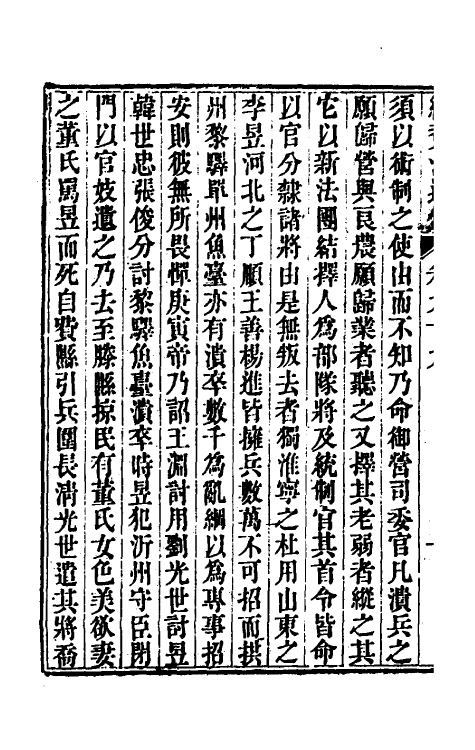 須以術制之使由而不知乃命御營司委官凡潰兵之
願歸營與良農願歸業者聽之又擇其老弱者縱之其
它以新法團結擇人爲部隊將及統制官其首令皆命
以官分隸諸將由是無叛去者獨淮寧之杜用山東之
李昱河北之丁順王善楊進皆擁兵數萬不可招而拱
州黎驛單州魚臺亦有潰卒數千爲亂綱以爲專事招
安則彼無所畏憚庚寅帝乃詔王淵討用劉光世討昱
韓世忠張俊分討黎驛魚臺潰卒時昱犯沂州守臣閉
門以官妓遺之乃去至滕縣掠民有董氏女色美欲妻
之董氏罵昱而死自費縣引兵圍長淸光世遣其將喬